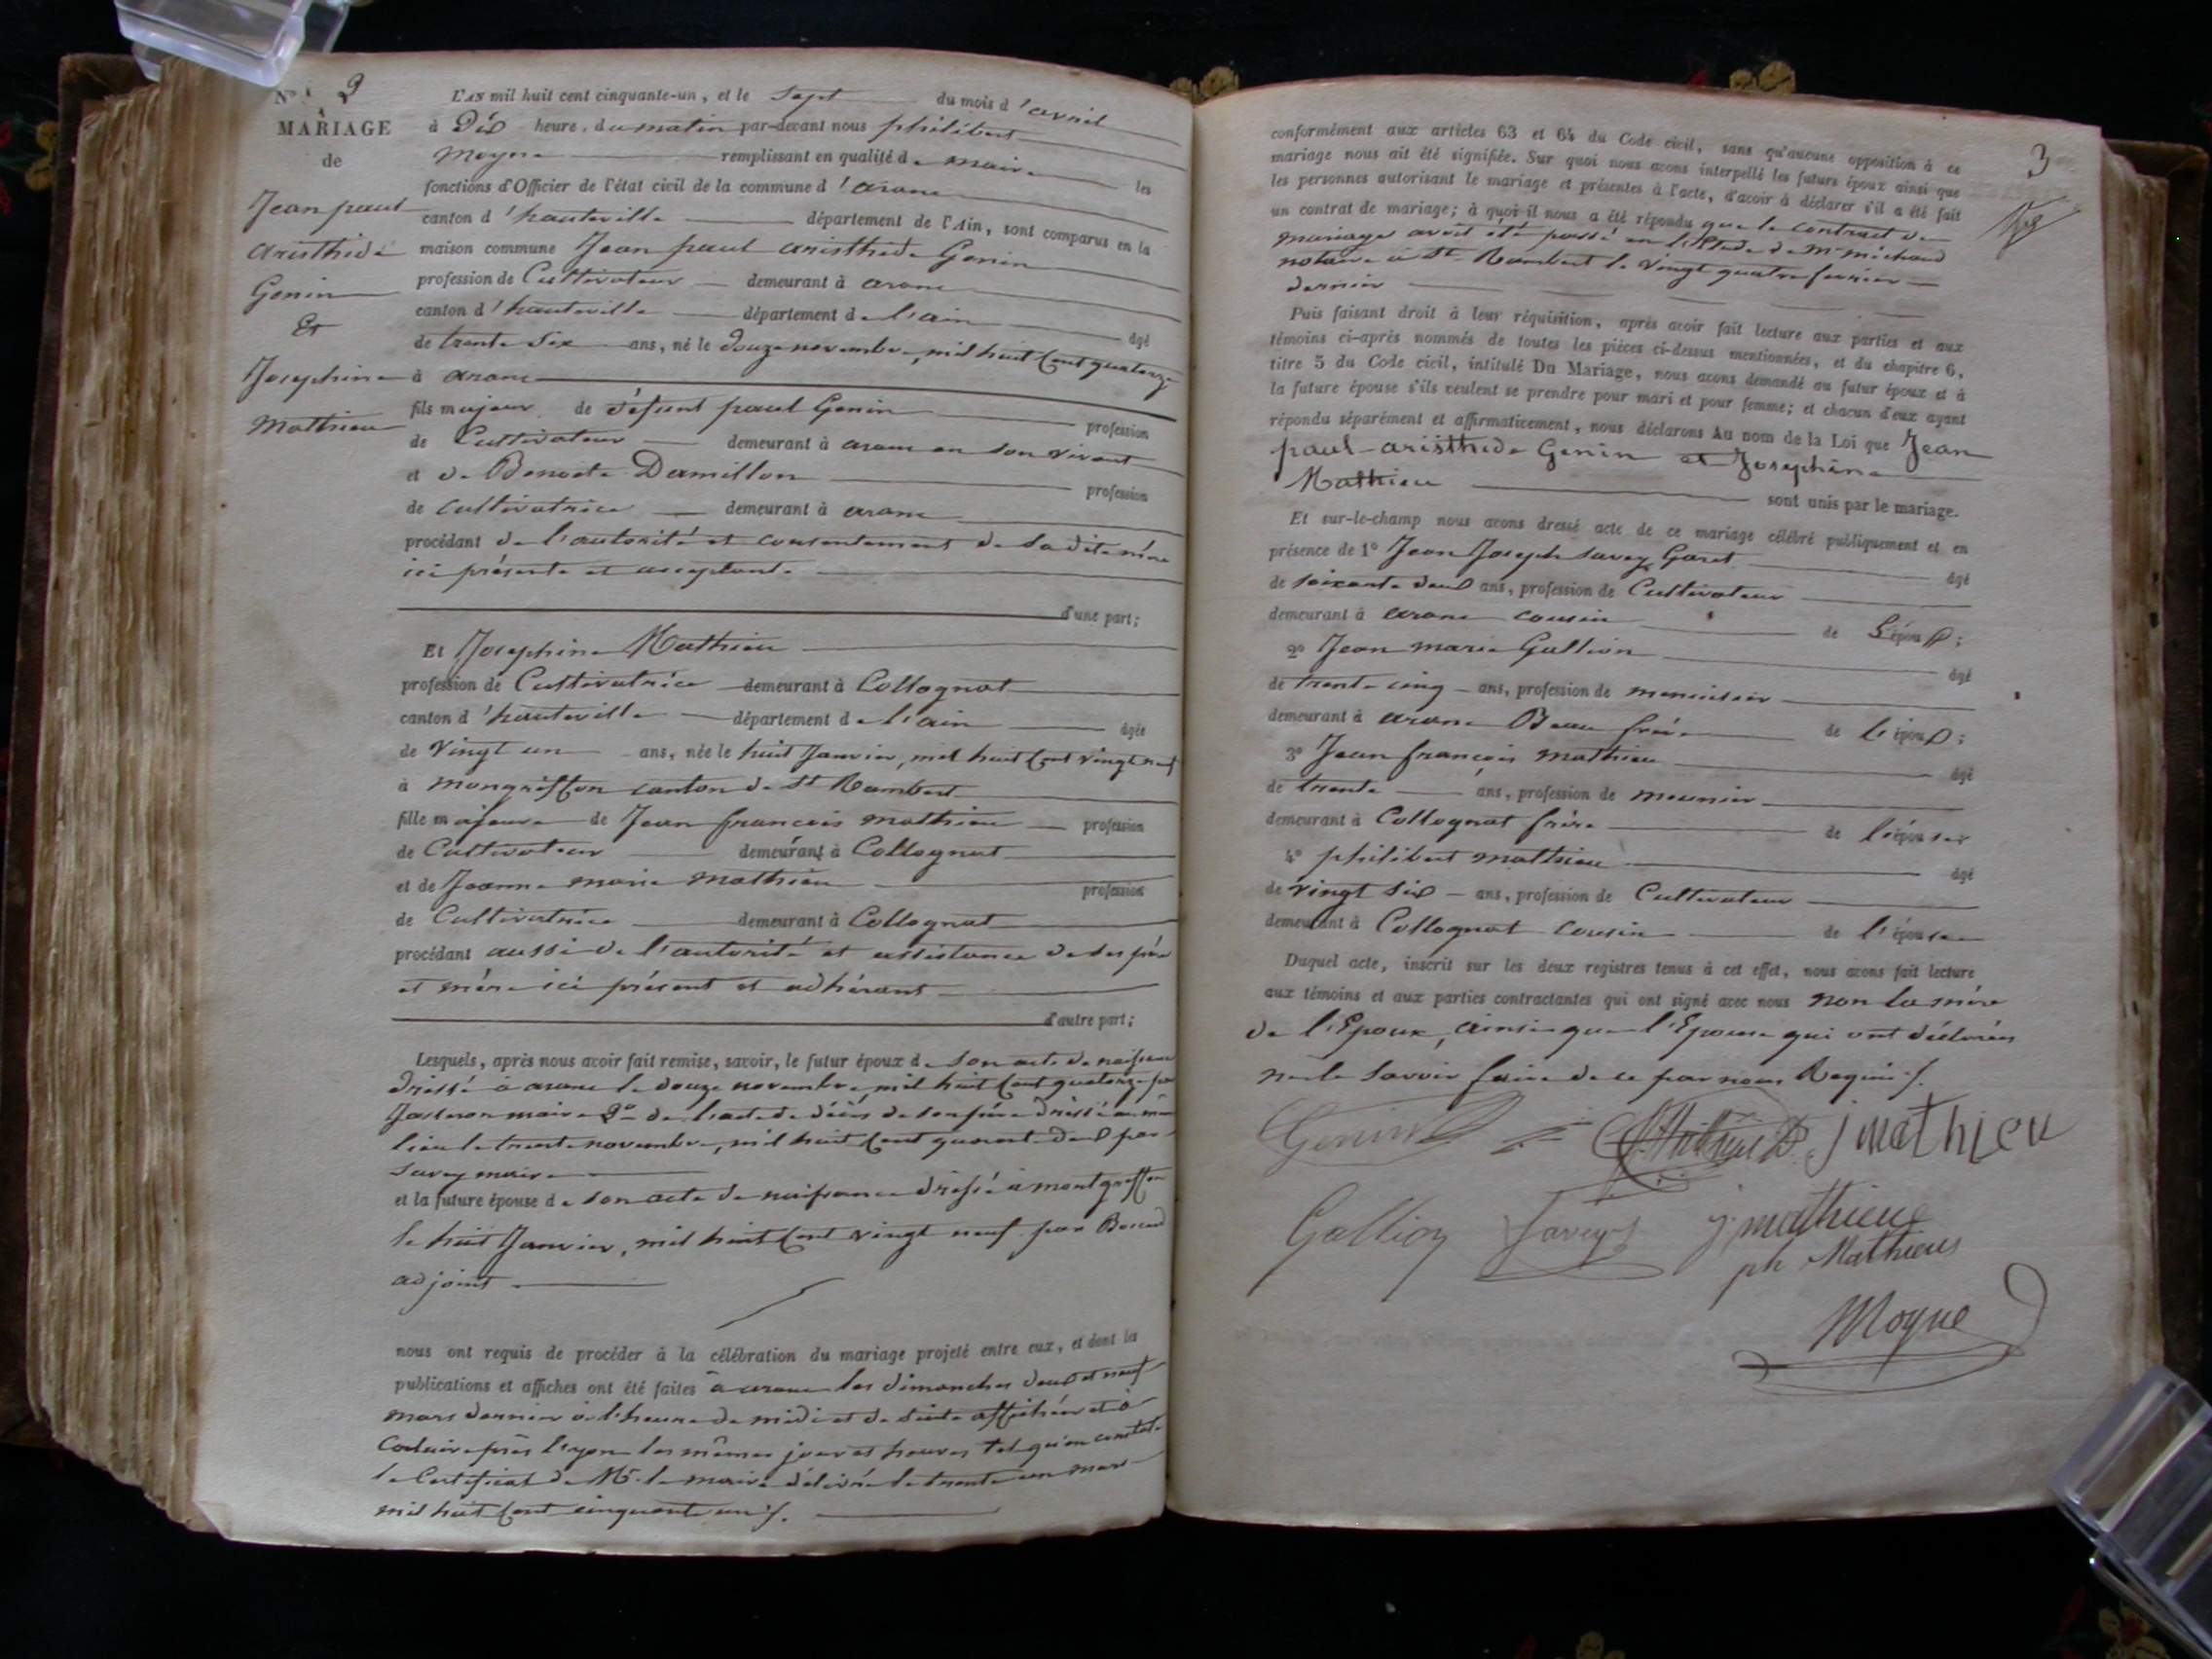 N° 9
MARIAGE
de
Jean paul
Aristhide
Genin
Et
Josephine
Mathieu
L'AN mil huit cent cinquante-un, et le Sept du mois d'avril
à Dix heure, du matin par-devant nous philibert
Moyne remplissant en qualité de maire les
fonctions d'Officier de l'état civil de la commune d'arane
canton d'hauteville département de l'Ain, sont comparus en la
maison commune Jean paul aristhide Genin
profession de Cultivateur demeurant à arane
canton d'hauteville département de l'ain âgé
de trente Six ans, né le douze novembre, mil huit Cent quatorze
à arane
fils majeur de défunt paul Genin profession
de Cultivateur demeurant à arane en son vivant
et de Benoite Damillon profession
de cultivatrice demeurant à arane
procédant de l'autorité et consentement de sa dite mère
ici présente et acceptante
d'une part;
Et Josephine Mathieu
profession de Cultivatrice demeurant à Collognat
canton d'hauteville département de l'ain âgée
de Vingt un ans, née le huit Janvier, mil huit Cent vingt neuf
à mongriffon canton de St Rambert
fille majeure de Jean françois mathieu profession
de Cultivateur demeurant à Collognat
et de Jeanne marie mathieu profession
de Cultivatrice demeurant à Collognat
procédant aussi de l'autorité et assistance de ses père
et mère ici présent et adhérant
d'autre part;
Lesquels, après nous avoir fait remise, savoir, le futur époux de son acte de naissance
dressé à arane le douze novembre, mil huit Cent quatorze par
maire 2° de l'acte de décès de son père dressé au même
lieu le trente novembre, mil huit Cent quarante deux par
Savey maire
et la future épouse de son acte de naissance dressé à montgriffon
le huit Janvier, mil huit Cent vingt neuf par
adjoint
nous ont requis de procéder à la célébration du mariage projeté entre eux, et dont les
publications et affiches ont été faites à arane les dimanches deux et neuf
mars dernier à l'heure de midi et de suite affichées et à
près l'yon les mêmes jour et heures tel qu'en constate
le Certificat de Mr. le maire délivré le trente un mars
mil huit Cent cinquante un /.
3
conformément aux articles 63 et 64 du Code civil, sans qu'aucune opposition à ce
mariage nous ait été signifiée. Sur quoi nous avons interpellé les futurs époux ainsi que
les personnes autorisant le mariage et présentes à l'acte, d'avoir à déclarer s'il a été fait
un contrat de mariage; à quoi il nous a été répondu que le contrat de
mariage avait été passé en l'Etude de Mr michaud
notaire à St Rambert le vingt quatre fevrier
dernier
Puis faisant droit à leur réquisition, après avoir fait lecture aux parties et aux
témoins ci-après nommés de toutes les pièces ci-dessus mentionnées, et du chapitre 6,
titre 5 du Code civil, intitulé Du Mariage, nous avons demandé au futur époux et à
la future épouse s'ils veulent se prendre pour mari et pour femme; et chacun d'eux ayant
répondu séparément et affirmativement, nous déclarons Au nom de la Loi que Jean
paul-aristhide Genin et Josephine
Mathieu sont unis par le mariage.
Et sur-le-champ nous avons dressé acte de ce mariage célébré publiquement et en
présence de 1° Jean Joseph Savey Garet âgé
de soixante deux ans, profession de Cultivateur
demeurant à arane cousin de L'époux;
2° Jean marie Gallion âgé
de trente cinq ans, profession de menuisier
demeurant à arane Beau frère de l'époux;
3° Jean françois mathieu âgé
de trente ans, profession de meunier
demeurant à Collognat frère de l'épouse
4° philibert mathieu âgé
de vingt six ans, profession de Cultivateur
demeurant à Collognat cousin de l'épouse
Duquel acte, inscrit sur les deux registres tenus à cet effet, nous avons fait lecture
aux témoins et aux parties contractantes qui ont signé avec nous non la mère
de l'Epoux, ainsi que l'Epouse qui ont déclarées
ne le Savoir faire de ce par nous Requis /.
Genin j mathieu
Gallion Savey j. mathieu
ph Mathieu
Moyne